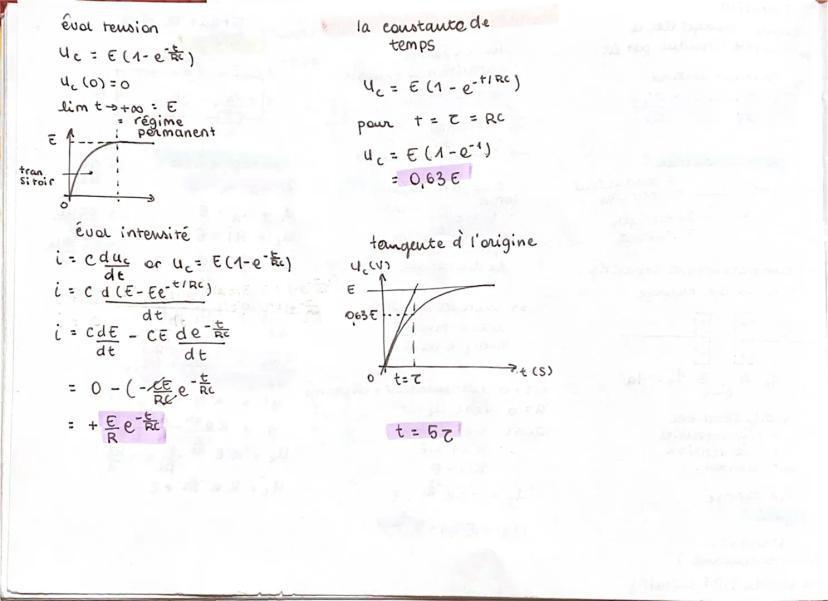 éval tension
u_c = E(1-e^-t/RC)
u_c(0)=0
lim t→+∞ = E
= régime
permanent
E
tran
sitoir
0
éval intensité
i = C du_c/dt or u_c = E(1-e^-t/RC)
i = C d(E-Ee^-t/RC)/dt
i = CdE/dt - CE de^-t/RC/dt
= 0 - (-CE/RC e^-t/RC
= + E/R e^-t/RC
la constante de
temps
u_c = E(1-e^-t/RC)
pour t = τ = RC
u_c = E(1-e^-1)
= 0,63E
tangente à l'origine
u_c(V)
E
0,63E
0 t=τ t(S)
t = 5τ